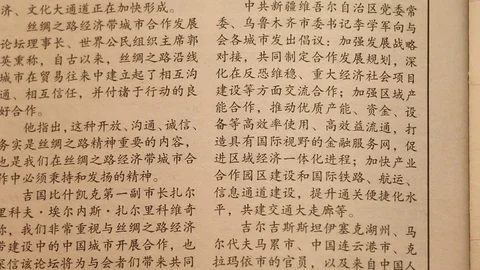 济、文化大通道正在加快形成。
丝绸之路经济带城市合作发展
论坛理事长、世界公民组织主席郭
英重称，自古以来，丝绸之路沿线
城市在贸易往来中建立起了相互沟
通、相互信任，并付诸于行动的良
好合作。
他指出，这种开放、沟通、诚信、
务实是丝绸之路精神重要的内容，
也是我们在丝绸之路经济带城市合
作中必须秉持和发扬的精神。
吉国比什凯克第一副市长扎尔
里科夫·埃尔内斯·扎尔里科维奇
称，我们非常重视与丝绸之路经济
带建设中的中国城市开展合作，也
深信该论坛将为与会者们带来共同
中共新疆维吾尔自治区党委常
委、乌鲁木齐市委书记李学军向与
会各城市发出倡议：加强发展战略
对接，共同制定合作发展规划，深
化在反恐维稳、重大经济社会项目
建设等方面交流合作；加强区域产
能合作，推动优质产能、资金、设
备等高效率使用、高效益流通，打
造具有国际视野的金融服务网，促
进区域经济一体化进程；加快产业
合作园区建设和国际铁路、航运、
信息通道建设，提升通关便捷化水
平，共建交通大走廊等。
吉尔吉斯斯坦伊塞克湖州、马
尔代夫马累市、中国连云港市、克
拉玛依市的官员，以及来自中国人